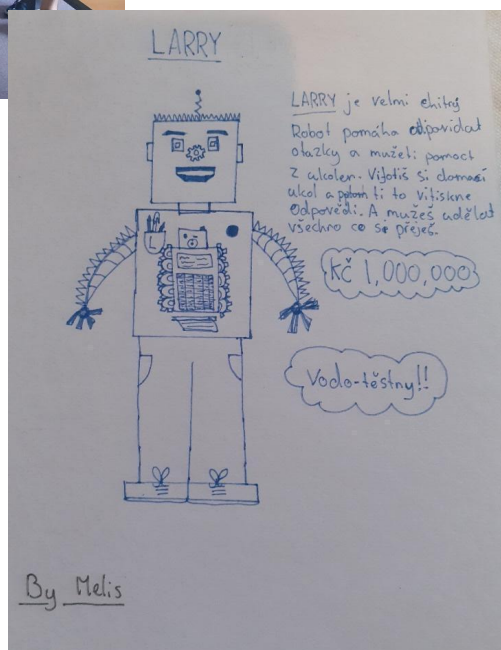 LARRY
LARRY je velmi chitrý
Robot pomáha odpovídat
otazky a mužeti pomoct
z ukolem. Vifotiš si domací
ukol a potom ti to vitiskne
Odpovědi. A mužeš udělat
všechno co se přeješ.
Kč 1,000,000
L
Vodo-těstny!!
By Melis